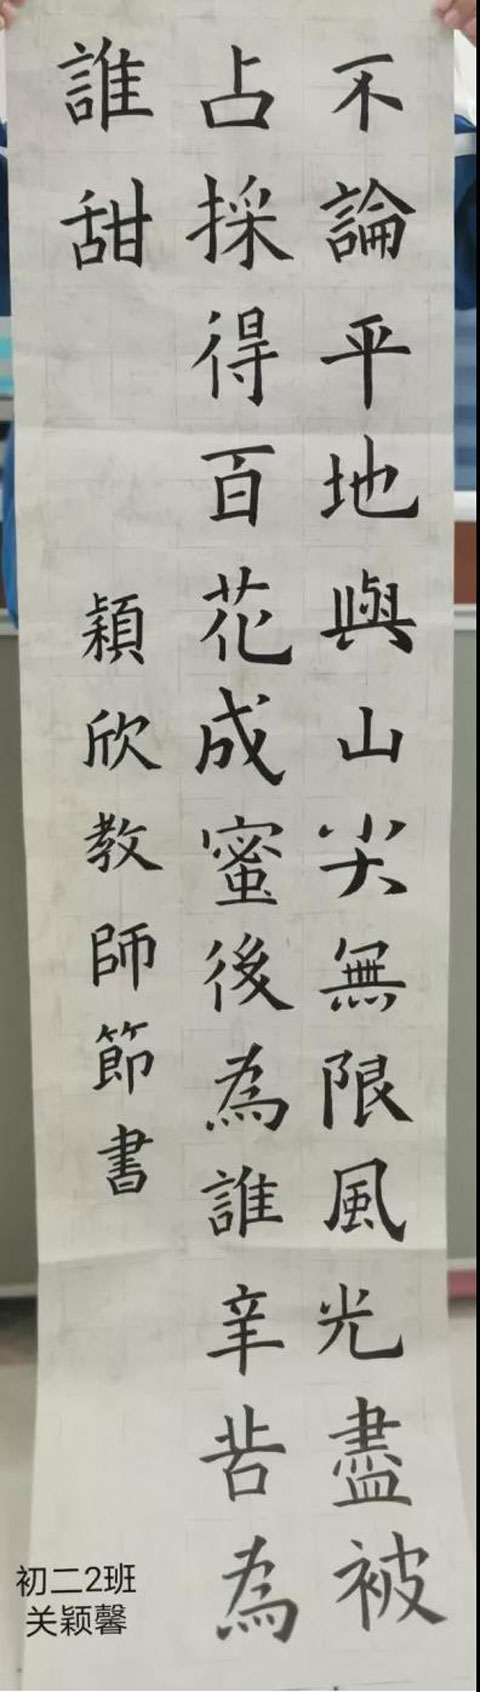 不論平地與山尖無限風光盡被
占採得百花成蜜後為誰辛苦為
誰甜
穎欣教師節書
初二2班
关颖馨